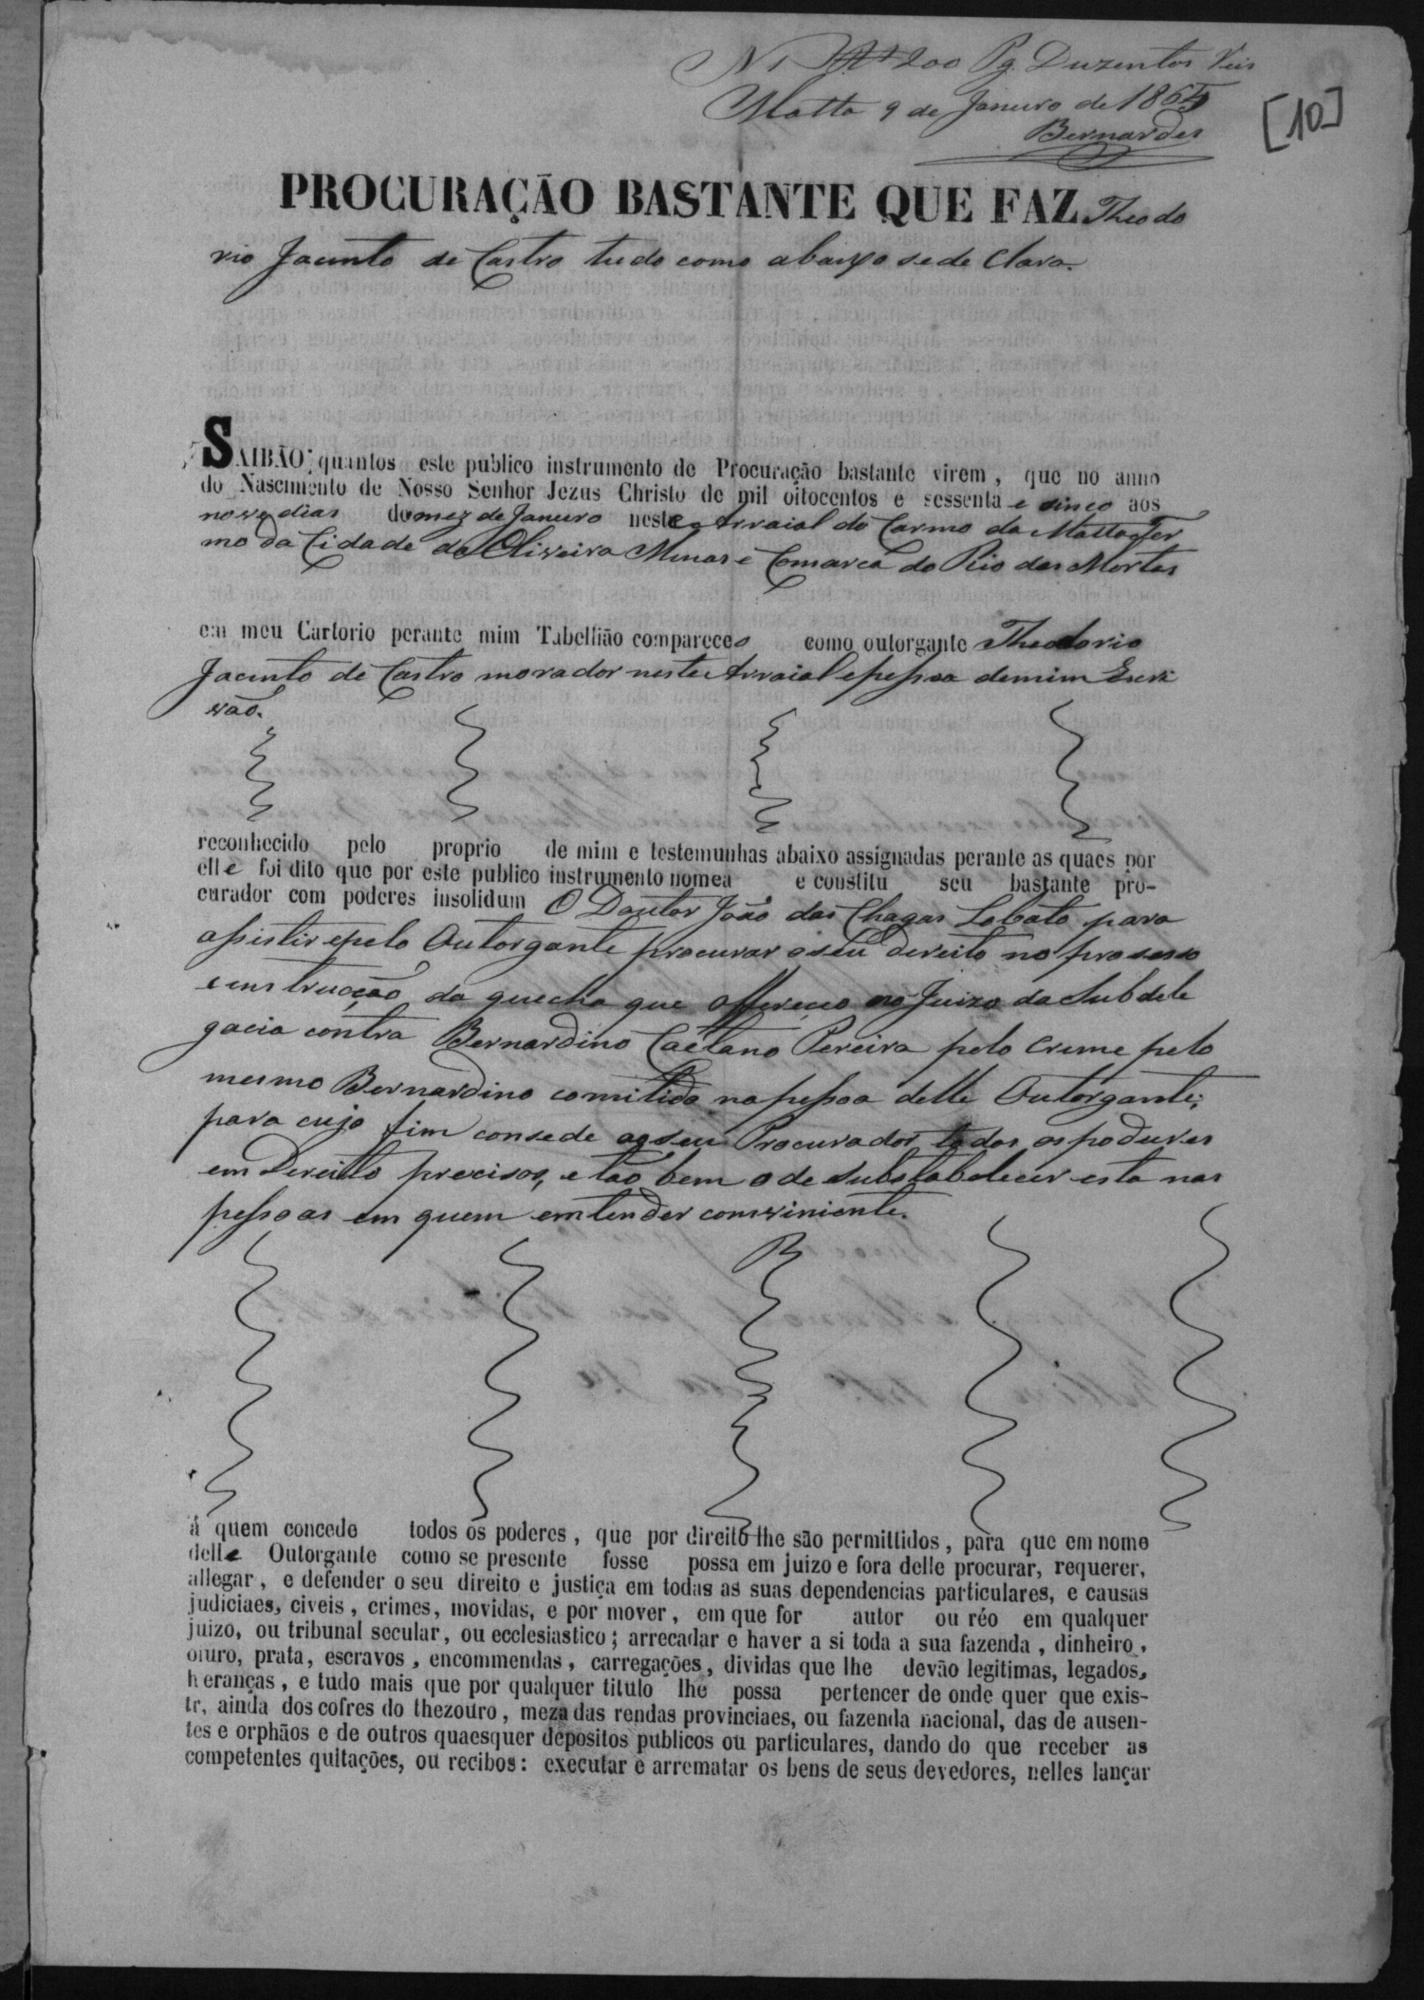 N 1 200 Pg. Duzentos Reis
Matta 9 de Janeiro de 1865
Bernardes
[10]
PROCURAÇÃO BASTANTE QUE FAZ Theodo
rio Jacinto de Castro tudo como abaixo se de Clara.
SAIBÃO quantos este publico instrumento de Procuração bastante virem, que no anno
do Nascimento de Nosso Senhor Jezus Christo de mil oitocentos e sessenta e sinco aos
nove dias do mez de Janeiro neste Arraial do Carmo da Matta Ter
mo da Cidade da Oliveira Minas e Comarca do Rio das Mortes
em meu Cartorio perante mim Tabellião compareceo como outorgante Theodorio
Jacinto de Castro morador neste Arraial e pessoa de mim Escri
vão.
reconhecido pelo proprio de mim e testemunhas abaixo assignadas perante as quaes por
elle foi dito que por este publico instrumento nomea e constitu seu bastante pro-
curador com poderes insolidum O Doutor João das Chagas Lobato para
assistir e pelo Outorgante procurar o seu direito no prosesso
e instrucção da queicha que offereceo no Juizo da Subdele
gacia contra Bernardino Caetano Pereira pelo Creme pelo
mesmo Bernardino comitido na pessoa delle Outorgante;
para cujo fim consede ao seu Procurador todos os poderes
em Direito precisos, e tão bem o de Substabelecer esta nas
pessoas em quem emtender conviniente.
á quem concede todos os poderes, que por direito lhe são permittidos, para que em nome
delle Outorgante como se presente fosse possa em juizo e fora delle procurar, requerer,
allegar, e defender o seu direito e justiça em todas as suas dependencias particulares, e causas
judiciaes, civeis, crimes, movidas, e por mover, em que for autor ou réo em qualquer
juizo, ou tribunal secular, ou ecclesiastico; arrecadar e haver a si toda a sua fazenda, dinheiro,
ouro, prata, escravos, encommendas, carregações, dividas que lhe devão legitimas, legados,
heranças, e tudo mais que por qualquer titulo lhe possa pertencer de onde quer que exis-
tr, ainda dos cofres do thezouro, meza das rendas provinciaes, ou fazenda nacional, das de ausen-
tes e orphãos e de outros quaesquer depositos publicos ou particulares, dando do que receber as
competentes quitações, ou recibos: executar e arrematar os bens de seus devedores, nelles lançar